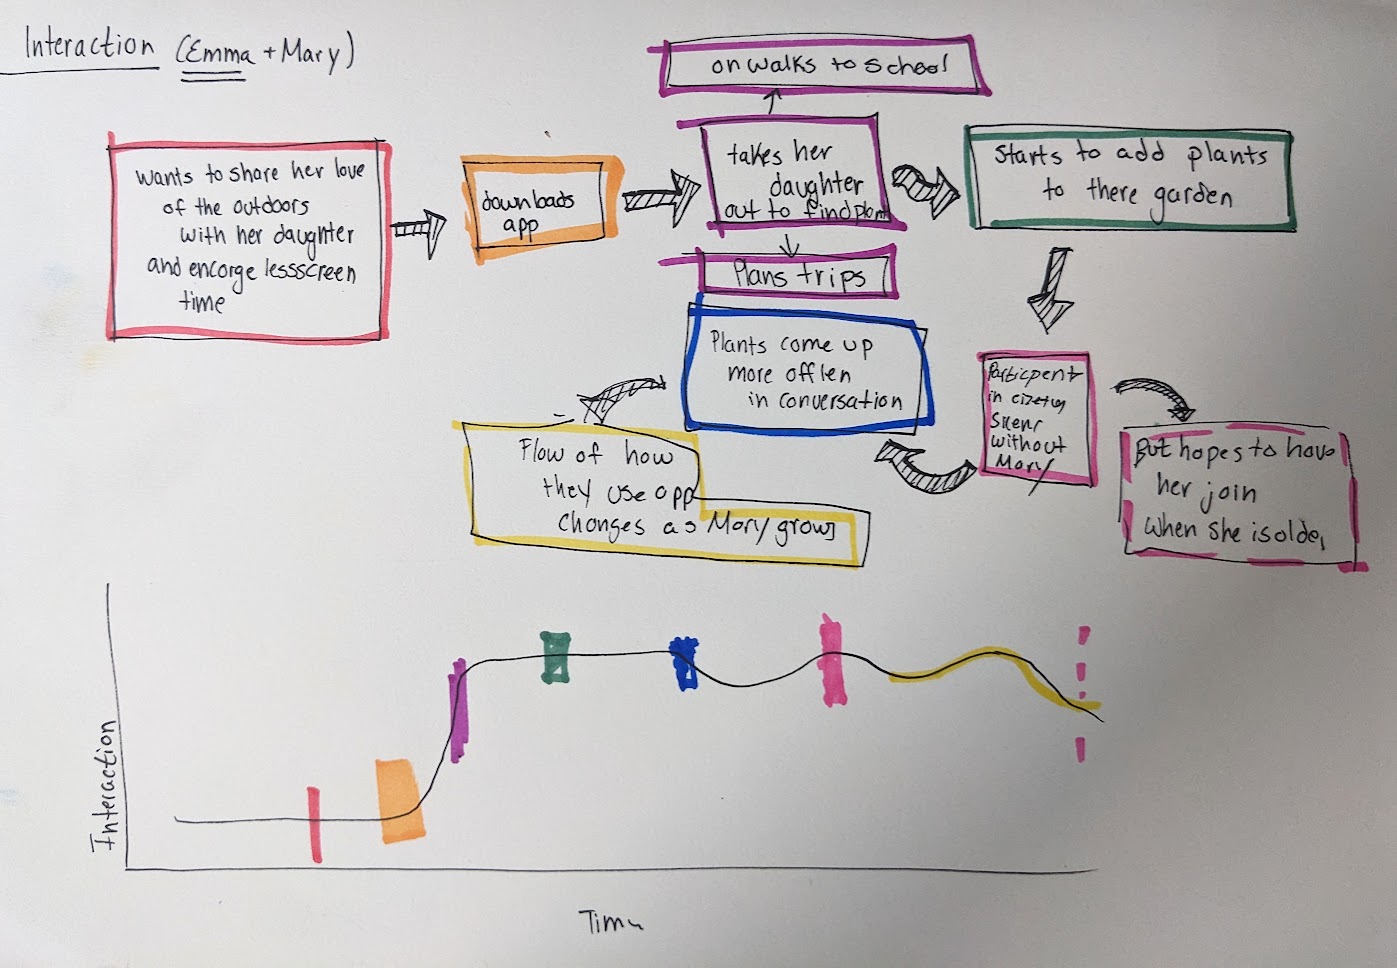 Interaction (Emma + Mary)
on walks to school
wants to share her love
of the outdoors
with her daughter
and encorge less screen
time
downloads
app
takes her
daughter
out to find plant
Starts to add plants
to there garden
Plans trips
Plants come up
more offten
in conversation
Particpent
in
without
Mary
But hopes to have
her join
when she is older
Flow of how
they use app
changes as Mary grows
Interaction
Time